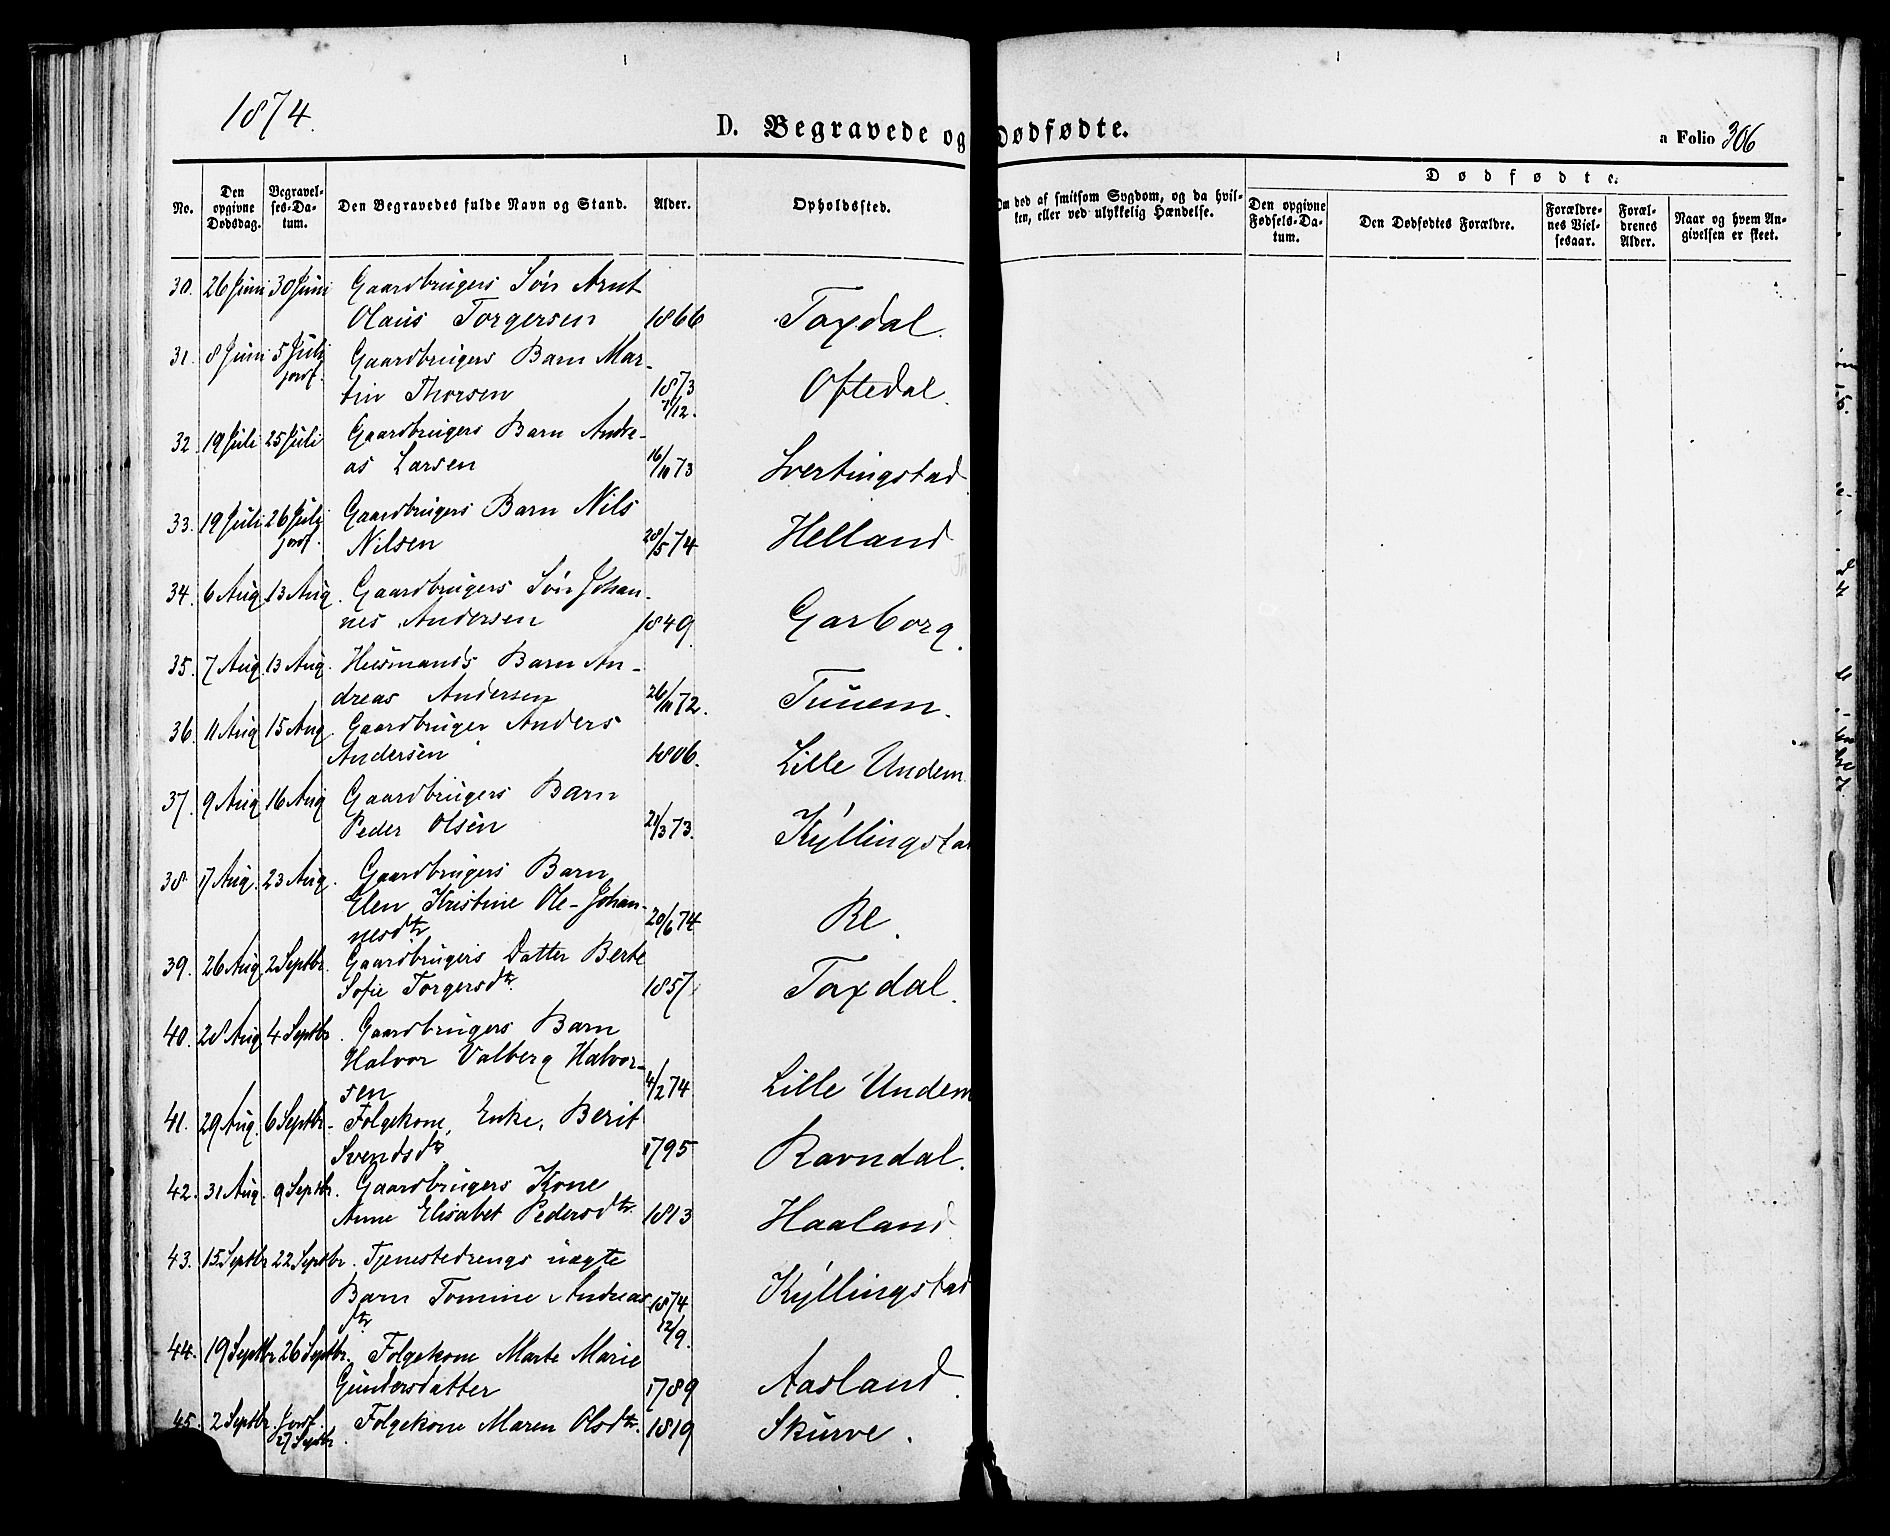 1874.
D. Begravede og Dødfødte.
a Folio 306
No. Den opgivne Dødsdag. Begravelses-Datum. Den Begravedes fulde Navn og Stand. Alder. Opholdssted. Om død af smitsom Sygdom, og da hvilken, eller ved ulykkelig Hændelse. Dødfødte.
Den opgivne Fødsels-Datum. Den Dødfødtes Forældre. Forældrenes Vielsesaar. Forældrenes Alder. Naar og hvem Angivelsen er skeet.
30. 26 Juni 30 Juni Gaardbrugers Søn Arnt
Olaus Torgersen 1866 Taxdal.
31. 8 Juni 5 Juli Gaardbrugers Barn Mar-
jordf. tin Thorsen 1873 Oftedal.
7/12.
32. 19 Juli 25 Juli Gaardbrugers Barn Andre-
as Larsen 16/10 73 Svertingstad
33. 19 Juli 26 Juli Gaardbrugers Barn Nils
jordf. Nilsen 28/5 74 Helland
34. 6 Aug. 13 Aug. Gaardbrugers Søn Johan-
nes Andersen 1849. Garborg.
35. 7 Aug. 13 Aug. Husmands Barn An-
dreas Andersen 26/11 72. Tunem.
36. 11 Aug. 15 Aug. Gaardbruger Anders
Andersen 1806. Lille Undem
37. 9 Aug. 16 Aug. Gaardbrugers Barn
Peder Olsen 21/3 73. Kyllingstad
38. 17 Aug. 23 Aug. Gaardbrugers Barn
Elen Kristine Ole-Johan-
nesdtr 20/6 74 Re.
39. 26 Aug. 2 Septbr. Gaardbrugers Datter Berte
Sofie Torgersdtr. 1857. Taxdal.
40. 28 Aug. 4 Septbr. Gaardbrugers Barn
Halvor Valberg Halvor-
sen 4/2 74 Lille Undem
41. 29 Aug. 6 Septbr. Folgekone, Enke, Berit
Svendsdtr 1795 Ravndal.
42. 31 Aug. 9 Septbr. Gaardbrugers Kone
Anne Elisabet Pedersdtr. 1813 Haaland
43. 15 Septbr 22 Septbr. Tjenestedrengs uægte
Barn Tomine Andreas 1874 Kyllingstad
dtr. 12/9.
44. 19 Septbr. 26 Septbr. Folgekone Marte Marie
Gundersdatter 1789 Aasland.
45. 2 Septbr. Jordf. 27 Septbr. Folgekone Maren Olsdtr. 1819 Skurve.